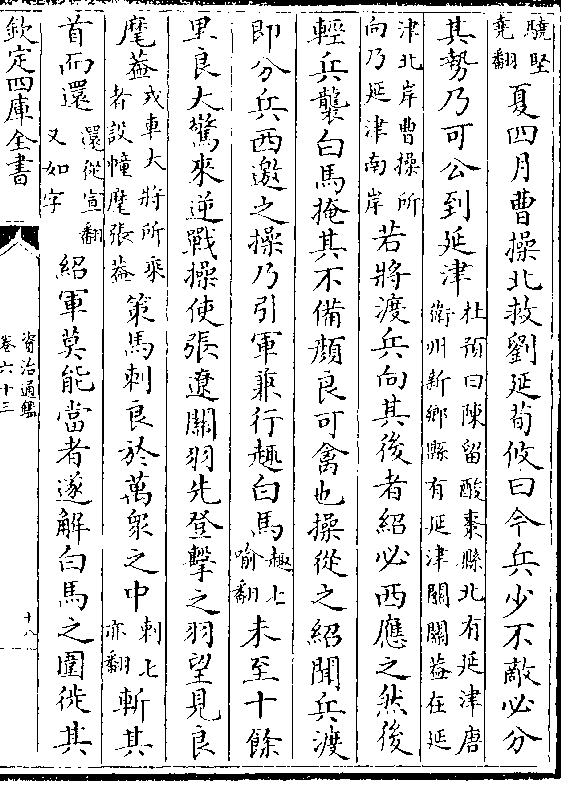 驍堅堯翻夏四月曹操北救劉延荀攸曰今兵少不敵必分
其勢乃可公到延津杜預曰陳留酸棗縣北有延津唐衛州新鄉縣有延津關關葢在延
津北岸曹操所向乃延津南岸若將渡兵向其後者紹必西應之然後
輕兵襲白馬掩其不備顔良可禽也操從之紹聞兵渡
即分兵西邀之操乃引軍兼行趣白馬趣七喻翻未至十餘
里良大驚來逆戰操使張遼關羽先登擊之羽望見良
麾葢戎車大將所乘者設幢麾張葢策馬刺良於萬衆之中刺七亦翻斬其
首而還還從宣翻又如字紹軍莫能當者遂解白馬之圍徙其
欽定四庫全書
資治通鑑
卷六十三
十八